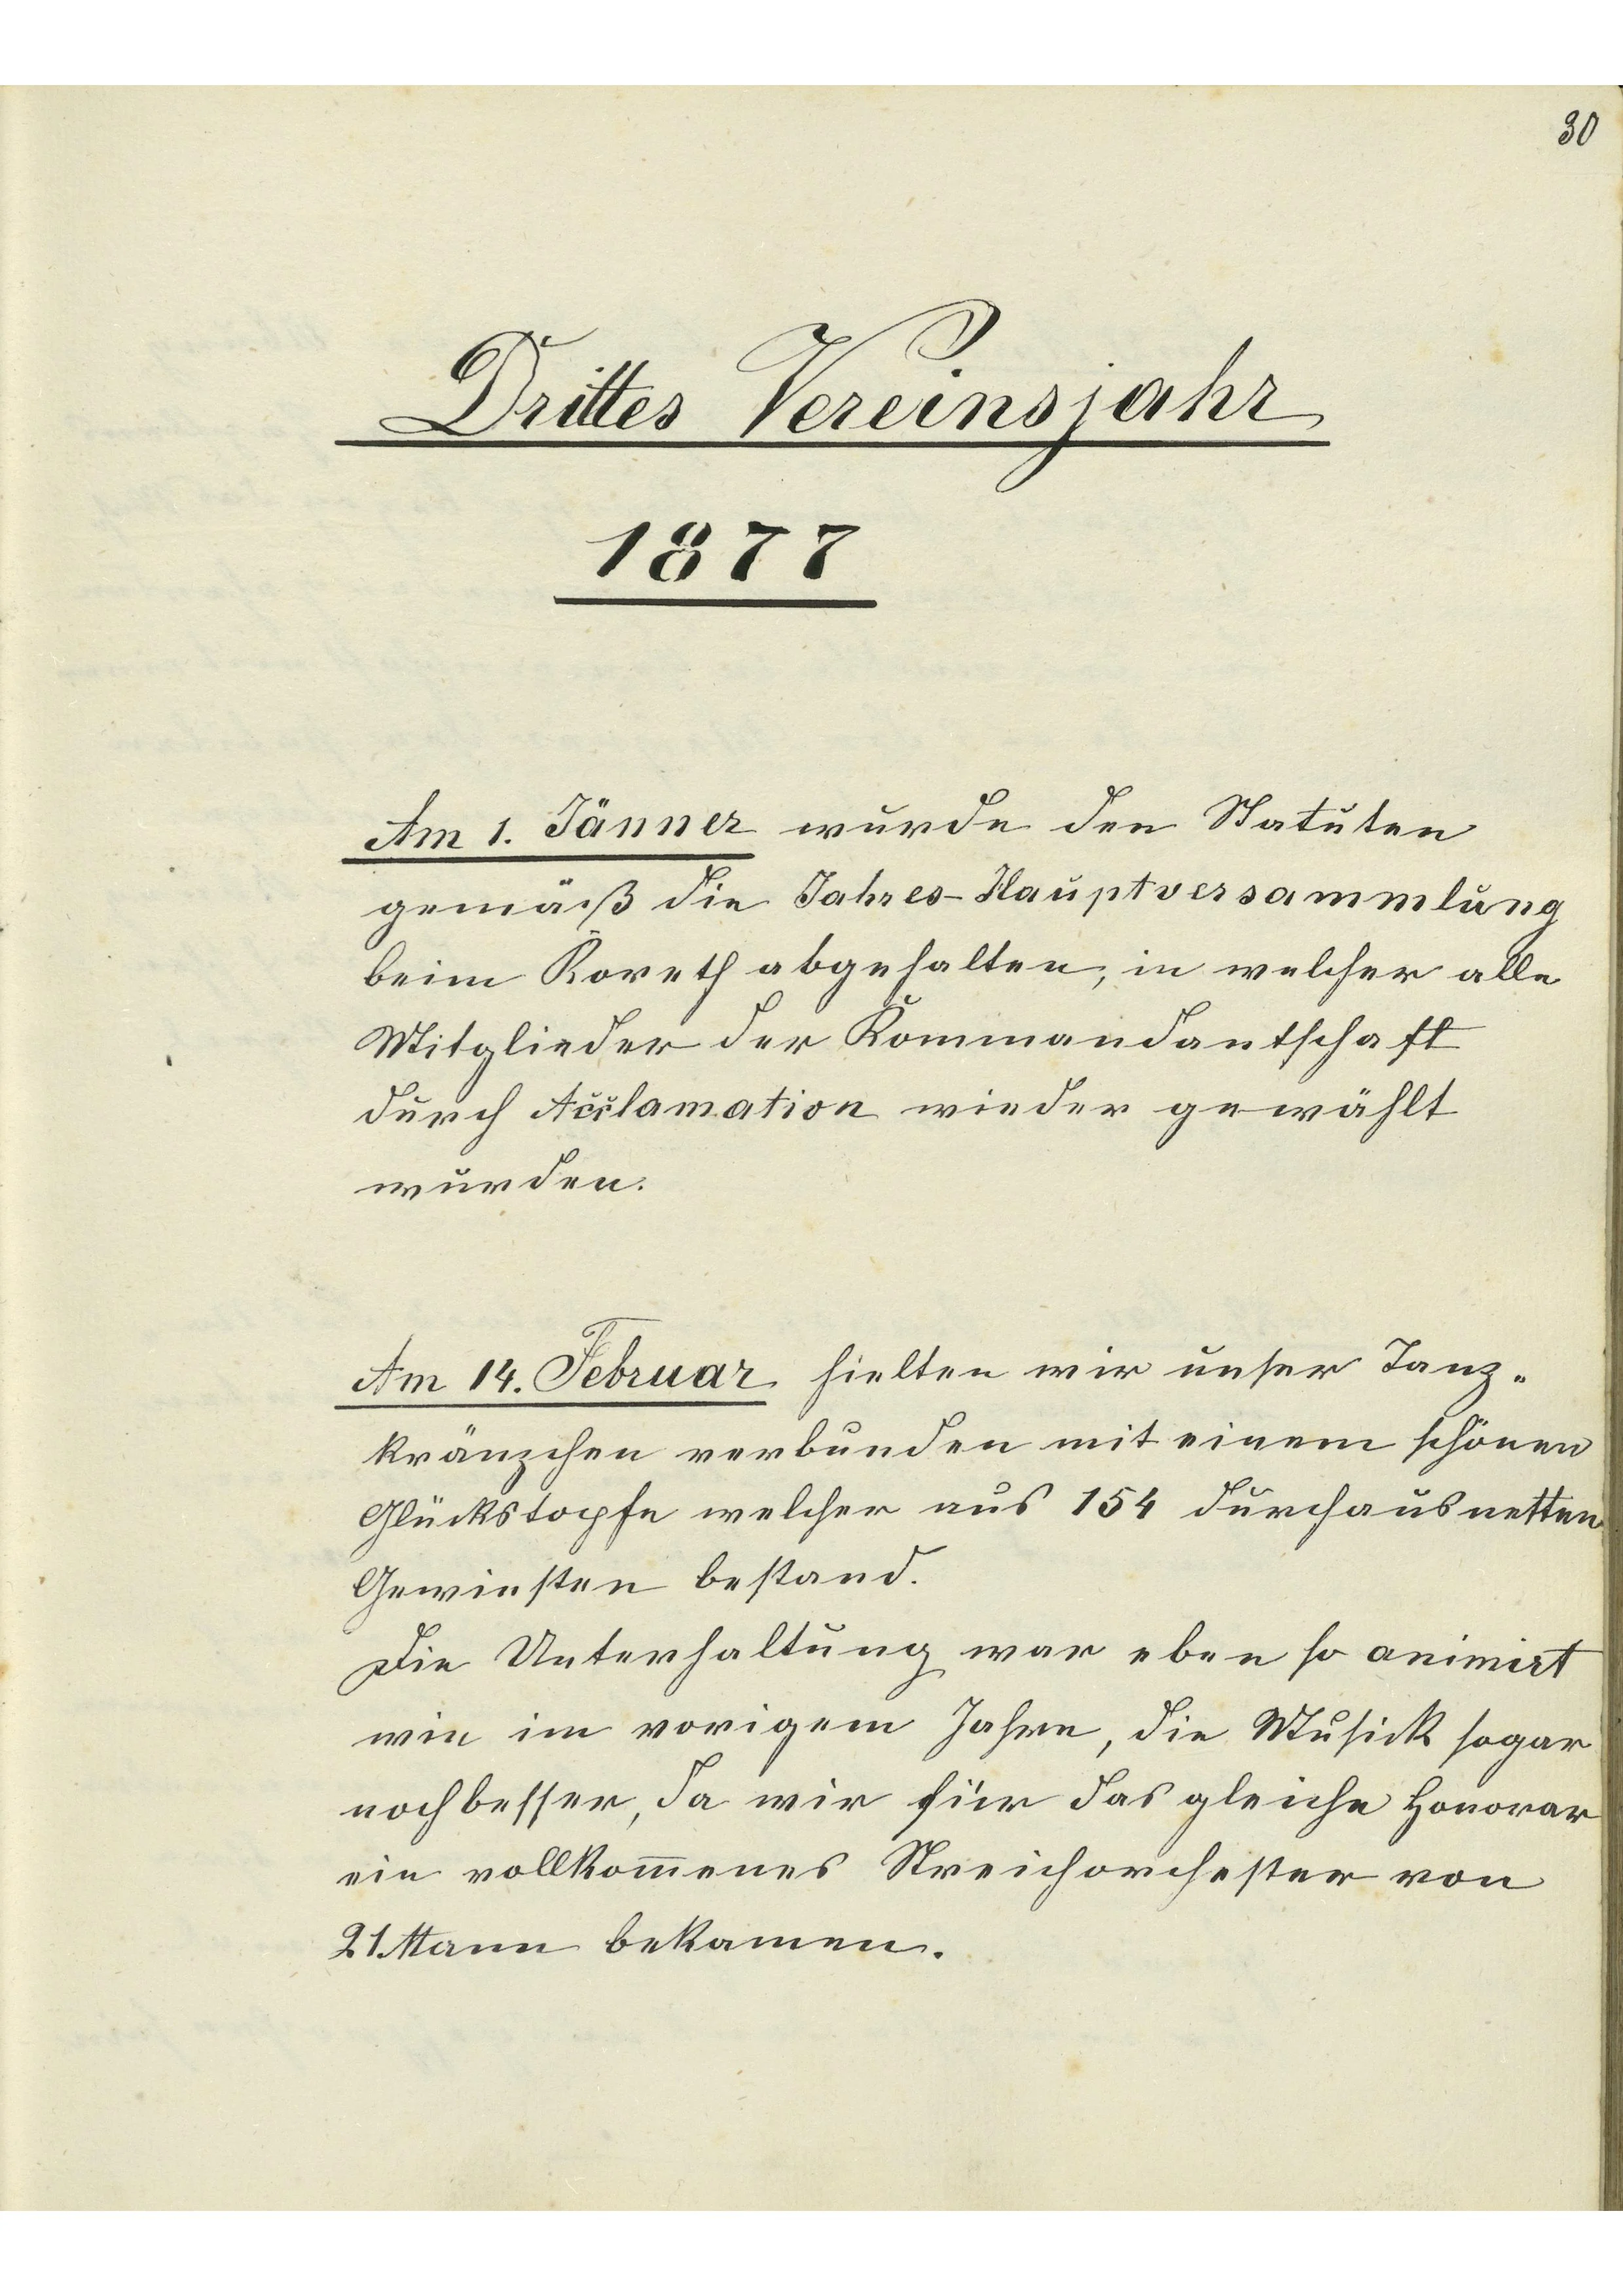 30
Drittes Vereinsjahr
1877
Am 1. Jänner wurde den Statuten
gemäß die Jahres-Hauptversammlung
beim Koreth abgehalten, in welcher alle
Mitglieder der Kommandantschaft
durch Acclamation wieder gewählt
wurden.
Am 14. Februar hielten wir unser Tanz-
kränzchen verbunden mit einem schönen
Glückstopfe welcher aus 154 durchaus netten
Gewinsten bestand.
Die Unterhaltung war eben so animirt
wie im vorigem Jahre, die Musick sogar
noch besser, da wir für das gleiche Honorar
ein vollkom̅enes Streichorchester von
21 Mann bekamen.